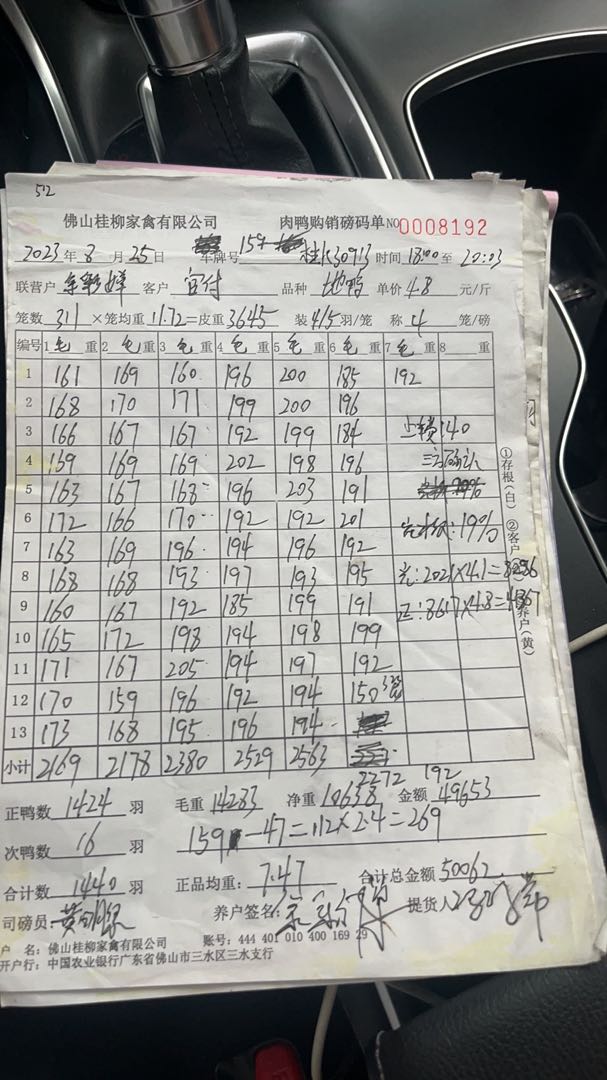 512
佛山桂柳家禽有限公司 肉鸭购销磅码单 NO 0008192
2023年 8月 25日 车牌号 159 桂K30913 时间 18:00 至 20:03
联营户 客户 宜付 品种 地鸭 单价 4.8 元/斤
笼数 311 ×笼均重 11.72=皮重 3645 装 4/5 羽/笼 称 4 笼/磅
编号 1 毛 重 2 毛 重 3 毛 重 4 毛 重 5 毛 重 6 毛 重 7 毛 重 8 重
1 161 169 160 196 200 185 192
2 168 170 171 199 200 196
3 166 167 167 192 199 184 :40
4 169 169 169 202 198 196
5 163 167 168 196 203 191
6 172 166 170 192 192 201 :19%
7 163 169 196 194 196 192
8 168 168 193 197 193 195 光:2021×4.1=8286
9 160 167 192 185 199 191 正:8617×4.8=41367
10 165 172 198 194 198 199
11 171 167 205 194 197 192
12 170 159 196 192 194 150
13 173 168 195 196 194
小计 2169 2178 2380 2529 2563
2272 192
正鸭数 1424 羽 毛重 14283 净重 10638 金额 49653
次鸭数 16 羽 159-47=112×2.4=269
合计数 1440 羽 正品均重: 7.47 合计总金额 50062
司磅员: 养户签名: 提货人
户 名: 佛山桂柳家禽有限公司 账号: 444 401 010 400 169 29
开户行: 中国农业银行广东省佛山市三水区三水支行
①存根(白) ②客户 养户(黄)